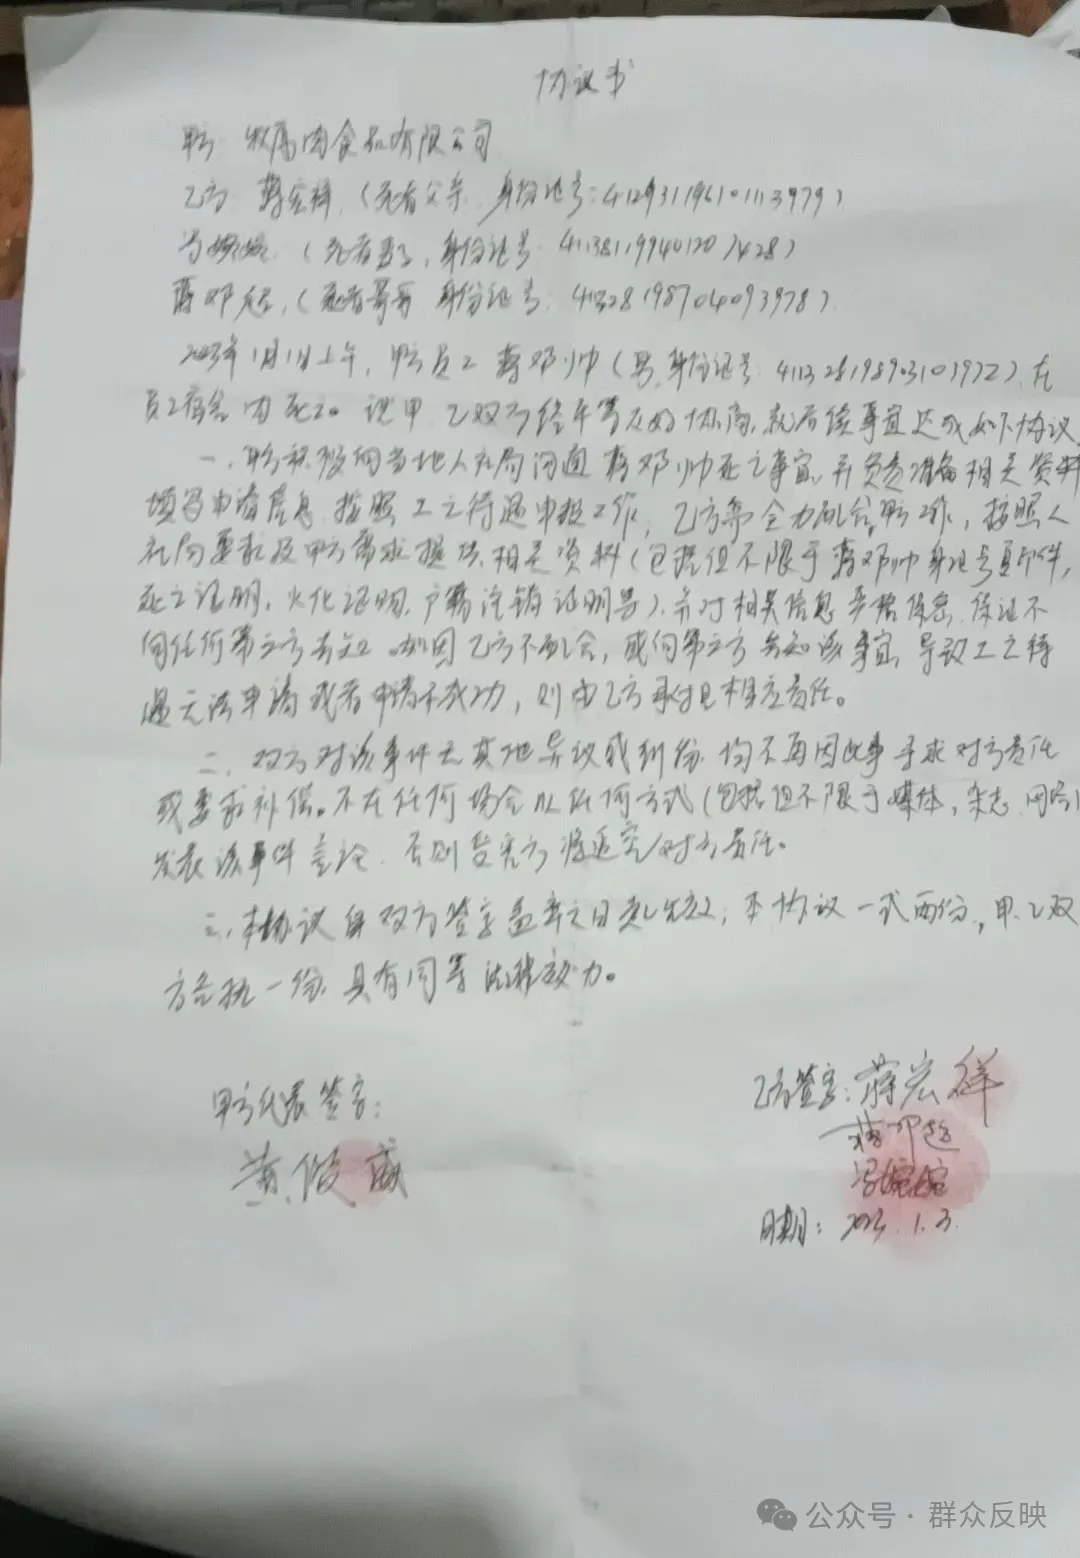 协议书
甲方：牧原肉食品有限公司
乙方：蒋宏祥（死者父亲，身份证号：
冯婉婉（死者妻子，身份证号：
蒋邓超，（死者哥哥，身份证号：
2023年1月1日上午，甲方员工蒋邓帅（男，身份证号：在
员工宿舍内死亡。现甲、乙双方经平等友好协商，就后续事宜达成如下协议
一、甲方积极向当地人社局沟通蒋邓帅死亡事宜，并负责准备相关资料
填写申请信息，按照工亡待遇申报工作，乙方需全力配合甲方工作，按照人
社局要求及甲方需求提供相关资料（包括但不限于蒋邓帅身证号复印件，
死亡证明，火化证明，户籍注销证明等），并对相关信息严格保密，保证不
向任何第三方告知。如因乙方不配合，或向第三方告知该事宜，导致工亡待
遇无法申请或者申请不成功，则由乙方承担相应责任。
二、双方对该事件无其他异议或纠纷，均不再因此事寻求对方责任
或要求补偿。不在任何场合以任何方式（包括但不限于媒体，杂志，网络）
发表该事件言论，否则受害方将追究对方责任。
三、本协议自双方签字盖章之日起生效；本协议一式两份，甲、乙双
方各执一份，具有同等法律效力。
甲方代表签字：
乙方签字：蒋宏祥
黄俊
蒋邓超
冯婉婉
日期：2023.1.3.
公众号·群众反映